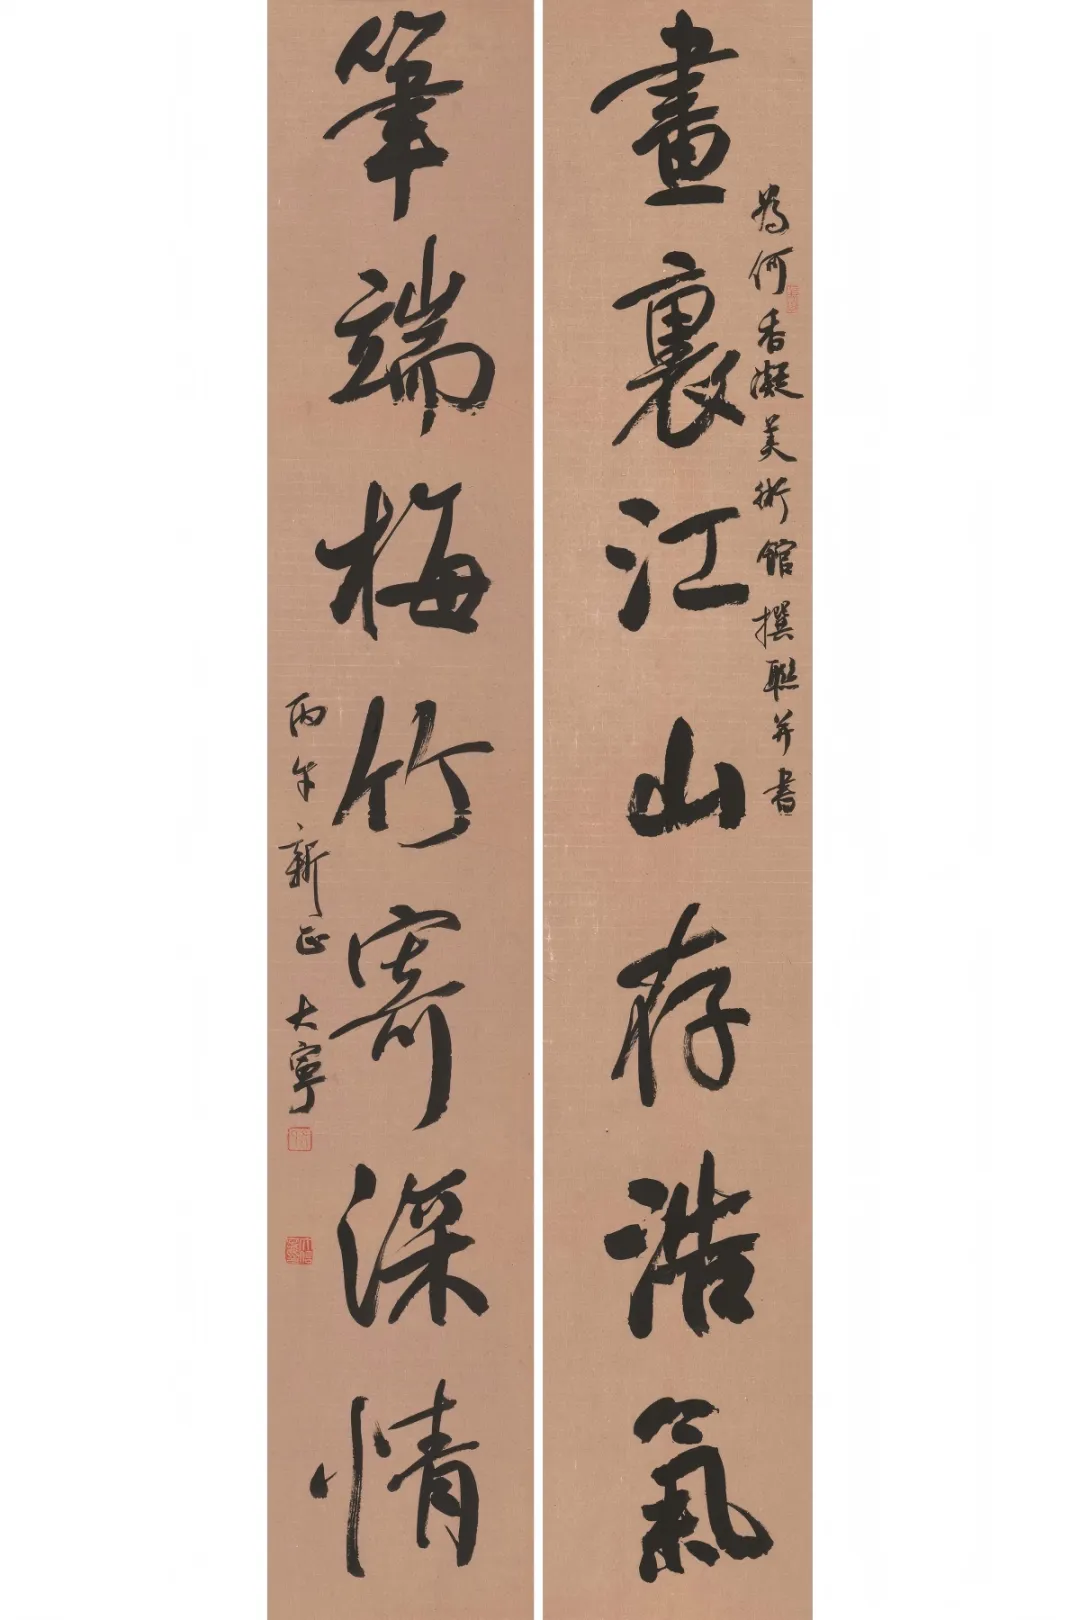 畫裏江山存浩氣
為何香凝美術館撰聯并書
筆端梅竹寄深情
丙午新正大寧